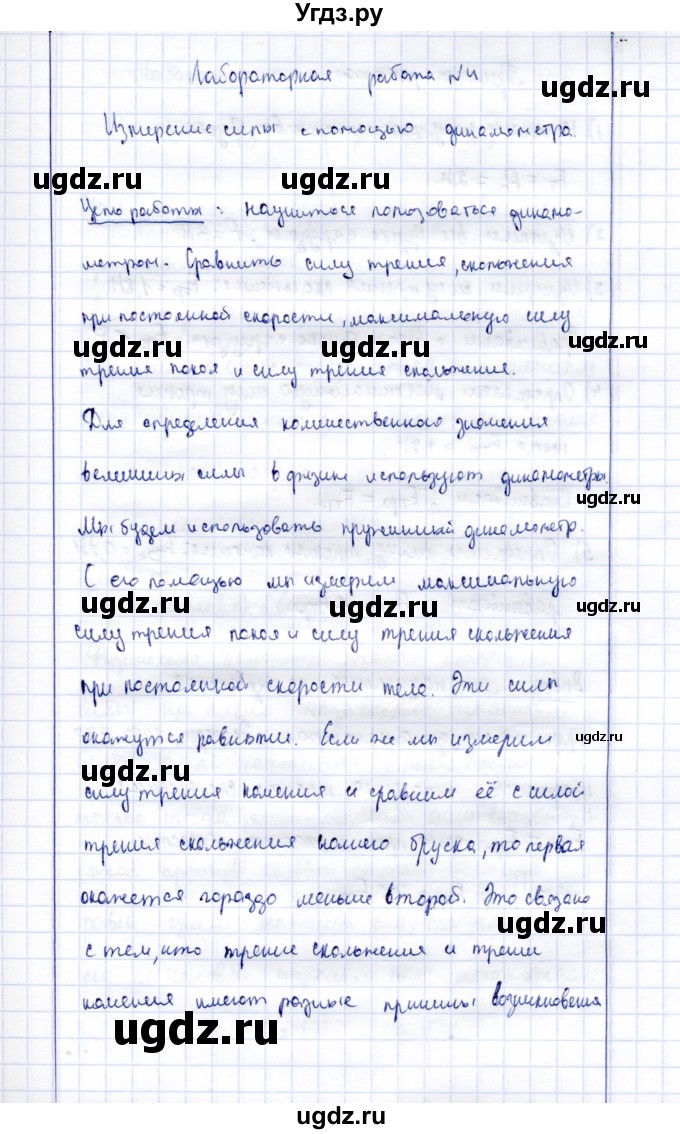 Угдз.ру
Лабораторная работа №4
ugdz.ru
Измерение силы с помощью динамометра.
ugdz.ru ugdz.ru
Цель работы: научиться пользоваться динамо-
метром. Сравнить силу трения, скольжения
при постоянной скорости, максимальную силу
ugdz.ru ugdz.ru ugdz.ru
трения покоя и силу трения скольжения.
Для определения количественного значения
величины силы в физике используют динамометры.
ugdz.ru
Мы будем использовать пружинный динамометр.
С его помощью мы измерим максимальную
ugdz.ru ugdz.ru ugdz.ru
силу трения покоя и силу трения скольжения
при постоянной скорости тела. Эти силы
окажутся равными. Если же мы измерим
ugdz.ru
ugdz.ru
силу трения качения и сравним её с силой
трения скольжения нашего бруска, то первая
окажется гораздо меньше второй. Это связано
ugdz.ru
с тем, что трение скольжения и трения
качения имеют разные причины возникновения
ugdz.ru
ugdz.ru